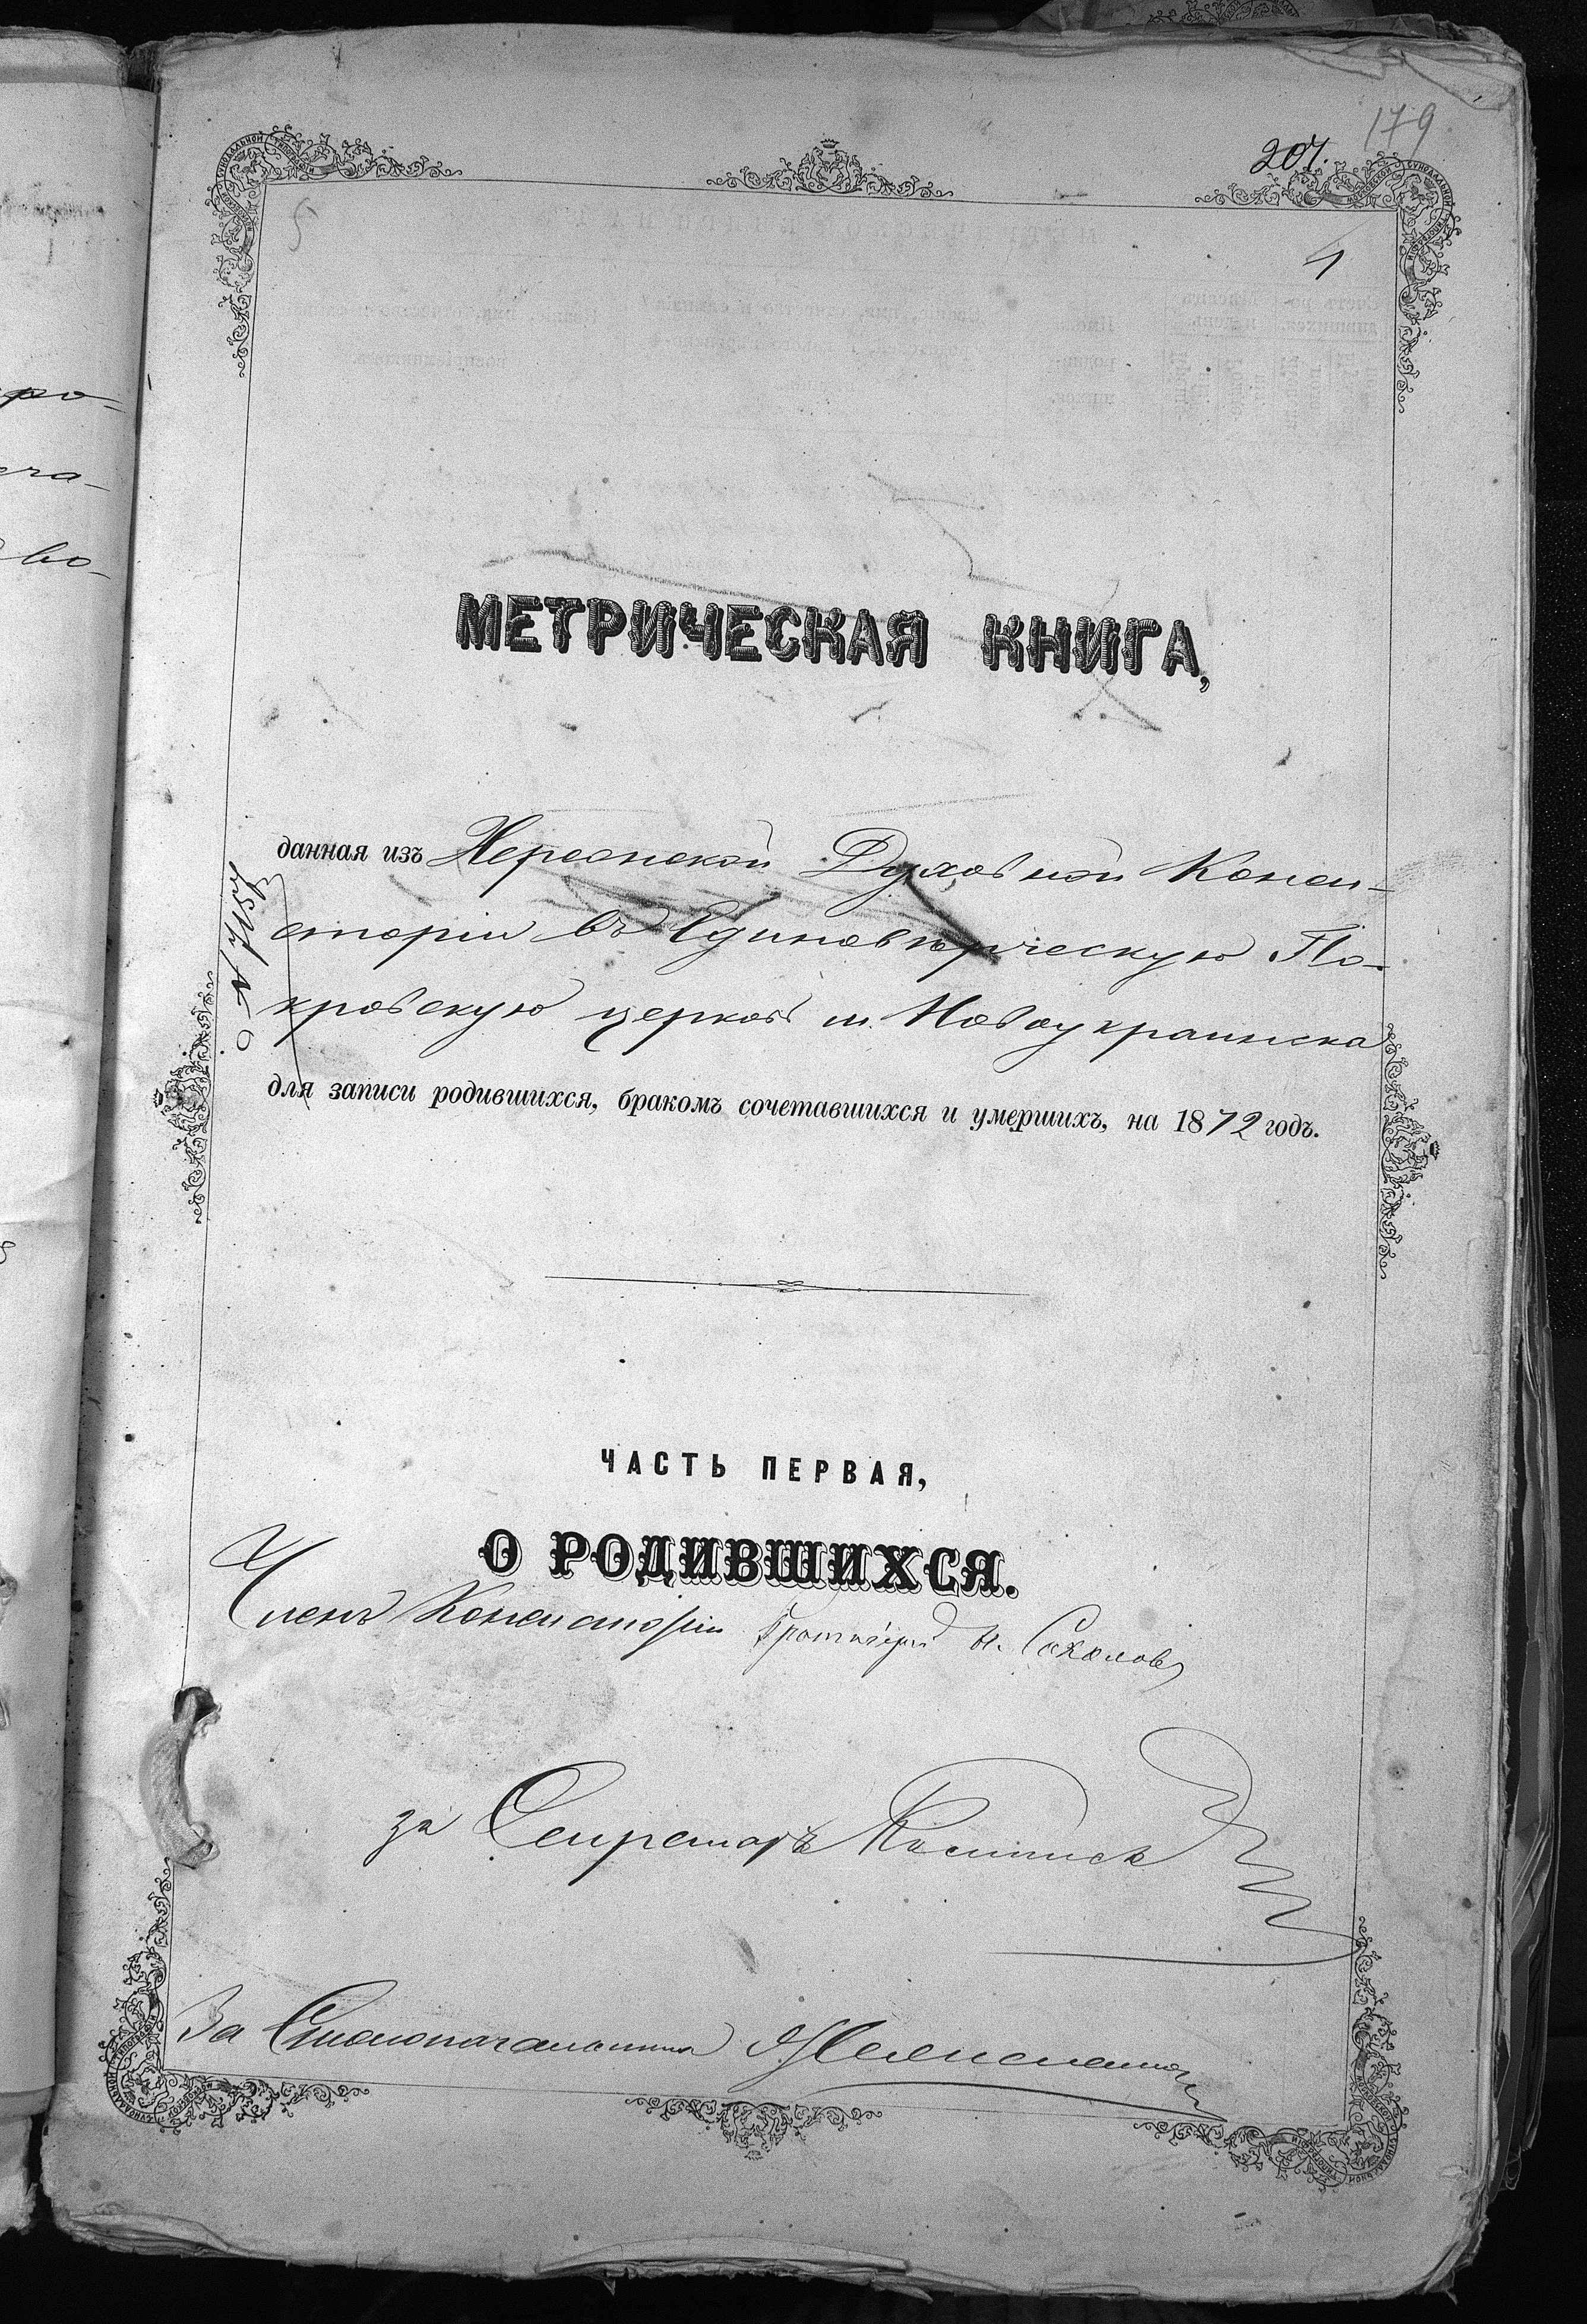 179
207.
1
МЕТРИЧЕСКАЯ КНИГА,
данная изъ Херсонской Духовной Конси-
сторіи въ Единовѣрческую По-
кровскую церковь м. Новоукраинска
для записи родившихся, бракомъ сочетавшихся и умершихъ, на 1872 годъ.
ЧАСТЬ ПЕРВАЯ,
О РОДИВШИХСЯ.
Членъ Консисторіи Протоіерей Н. Соколовъ
за Секретаря
За Столоначальника
ро-
во-